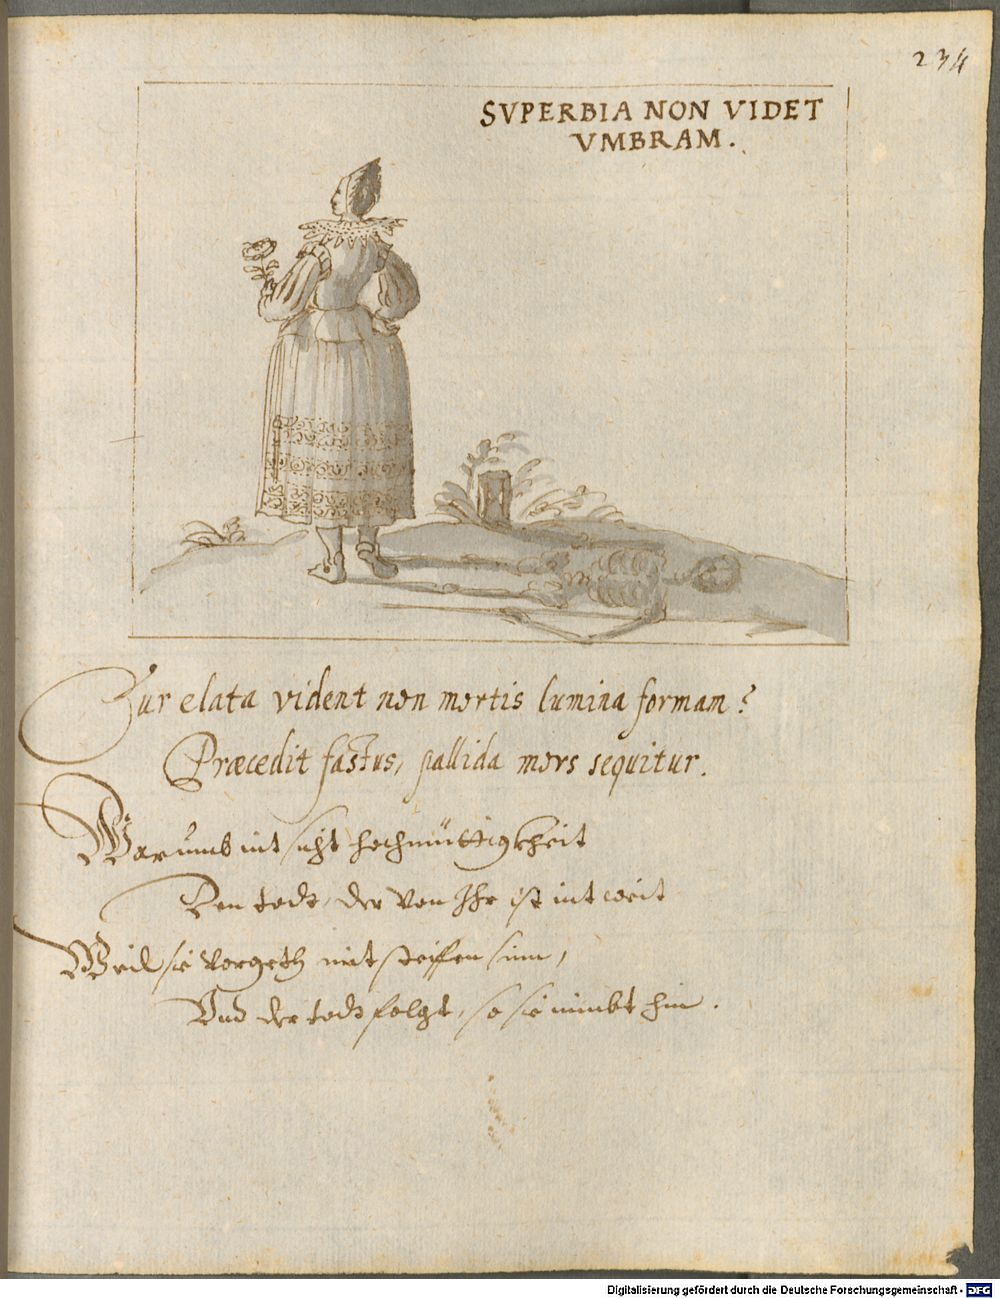 234
SVPERBIA NON VIDET
VMBRAM.
Cur elata vident non mortis lumina formam?
Præcedit fastus, pallida mors sequitur.
Warumb nit sicht hochmüttigkheit
Den todt, der von Ihr ist nit weit
Weil sie vorgeth mit steiffen sinn,
Vnd der todt folgt, so sie nimbt hin.
Digitalisierung gefördert durch die Deutsche Forschungsgemeinschaft - DFG